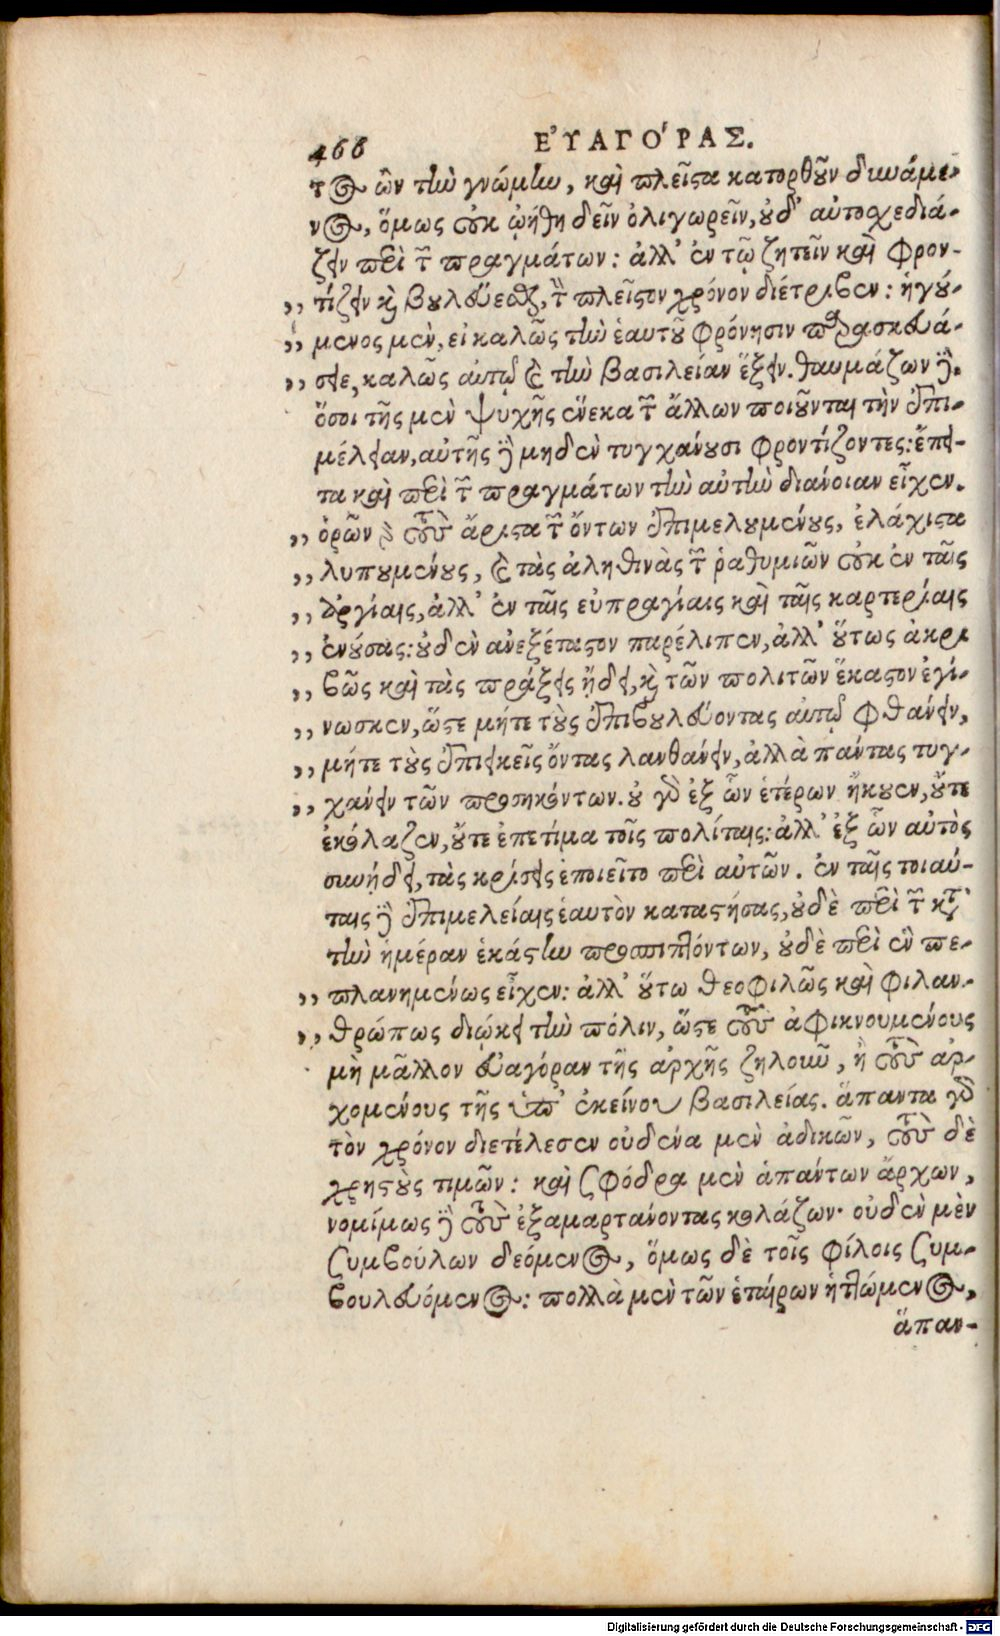 466 ΕὐΑΓΌΡΑΣ.
τος ὢν τὴν γνώμην, καὶ πλεῖστα κατορθοῦν δυνάμε-
νος, ὅμως οὐκ ᾠήθη δεῖν ὀλιγωρεῖν, οὐδ' αὐτοσχεδιά-
ζειν περὶ τῶν πραγμάτων: ἀλλ' ἐν τῷ ζητεῖν καὶ φρον-
,, τίζειν καὶ βουλεύεσθαι, τὸν πλεῖστον χρόνον διέτριβεν: ἡγού-
,, μενος μὲν, εἰ καλῶς τὴν ἑαυτοῦ φρόνησιν παρασκευά-
,, σειε, καλῶς αὐτῷ καὶ τὴν βασιλείαν ἕξειν. θαυμάζων δὲ
ὅσοι τῆς μὲν ψυχῆς ἕνεκα τῶν ἄλλων ποιοῦνται τὴν ἐπι-
μέλειαν, αὐτῆς δὲ μηδὲν τυγχάνουσι φροντίζοντες: ἔπει-
τα καὶ περὶ τῶν πραγμάτων τὴν αὐτὴν διάνοιαν εἶχεν.
,, ὁρῶν γὰρ τοὺς ἄριστα τῶν ὄντων ἐπιμελουμένους, ἐλάχιστα
,, λυπουμένους, καὶ τὰς ἀληθινὰς τῶν ῥαθυμιῶν οὐκ ἐν ταῖς
,, ἀργίαις, ἀλλ' ἐν ταῖς εὐπραγίαις καὶ ταῖς καρτερίαις
,, ἐνούσας: οὐδὲν ἀνεξέταστον παρέλιπεν, ἀλλ' οὕτως ἀκρι
,, βῶς καὶ τὰς πράξεις ᾔδει, καὶ τῶν πολιτῶν ἕκαστον ἐγί-
,, νωσκεν, ὥστε μήτε τοὺς ἐπιβουλεύοντας αὐτῷ φθάνειν,
,, μήτε τοὺς ἐπιεικεῖς ὄντας λανθάνειν, ἀλλὰ πάντας τυγ-
,, χάνειν τῶν προσηκόντων. οὐ γὰρ ἐξ ὧν ἑτέρων ἤκουεν, οὔτε
ἐκόλαζεν, οὔτε ἐπετίμα τοῖς πολίταις: ἀλλ' ἐξ ὧν αὐτὸς
συνῄδει, τὰς κρίσεις ἐποιεῖτο περὶ αὐτῶν. ἐν ταῖς τοιαύ-
ταις δὲ ἐπιμελείαις ἑαυτὸν καταστήσας, οὐδὲ περὶ τῶν κατὰ
τὴν ἡμέραν ἑκάστην προσπιπτόντων, οὐδὲ περὶ ἓν πε-
,, πλανημένως εἶχεν: ἀλλ' οὕτω θεοφιλῶς καὶ φιλαν-
,, θρώπως διῴκει τὴν πόλιν, ὥστε τοὺς ἀφικνουμένους
μὴ μᾶλλον εὐαγόραν τῆς ἀρχῆς ζηλοῦν, ἢ τοὺς ἀρ-
χομένους τῆς ὑπ' ἐκείνου βασιλείας. ἅπαντα γὰρ
τὸν χρόνον διετέλεσεν οὐδένα μὲν ἀδικῶν, τοὺς δὲ
χρηστοὺς τιμῶν: καὶ σφόδρα μὲν ἁπάντων ἄρχων,
νομίμως δὲ τοὺς ἐξαμαρτάνοντας κολάζων· οὐδὲν μὲν
συμβούλων δεόμενος, ὅμως δὲ τοῖς φίλοις συμ-
βουλευόμενος: πολλὰ μὲν τῶν ἑταίρων ἡττώμενος,
ἅπαν-
Digitalisierung gefördert durch die Deutsche Forschungsgemeinschaft - DFG